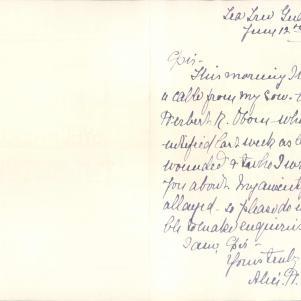 Sea View
June 12th
Sir -
This morning I
a cable from my son -
Herbert R. Oborn - who
notified last week as
wounded & who I
you about. My anxiety
allayed - so please do
ble to make enquiries
I am, Sir -
Yours truly
Alice.